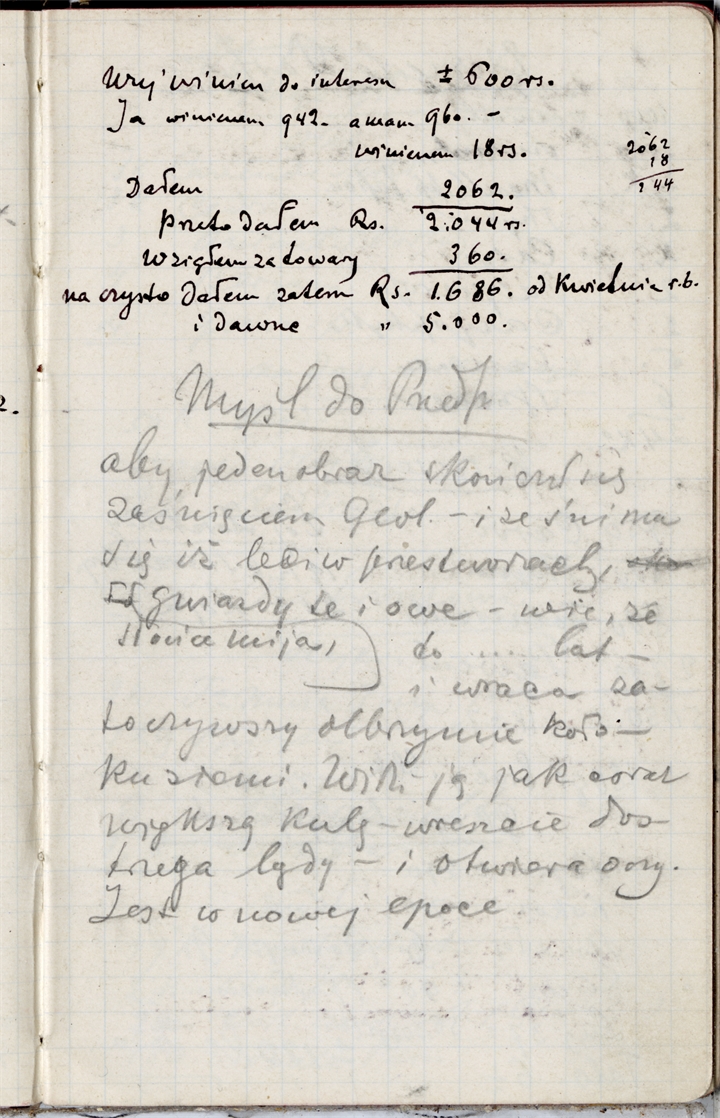 Wuj winien do interesu ± 600 rs.
Ja winienem 942. a mam 960. –
winienem 18 rs.
2062
18
2 44
Dałem 2062.
przeto Dałem Rs. 2.044 rs.
Wziąłem za towary 360.
na czysto Dałem zatem Rs. 1.686. od Kwietnia r.b.
i Dawne " 5.000.
2.
Myśl do
aby jeden obraz skończył się
zaśnięciem Geol. – i że śni mu
się iż leci w przestworzach,
gwiazdy te i owe – wie, że
słońca mija,
do .... lat –
i wraca za-
toczywszy olbrzymie koło –
ku ziemi. Widzi ją jak coraz
większą kulę – wreszcie dos-
trzega lądy – i otwiera oczy.
Jest w nowej epoce